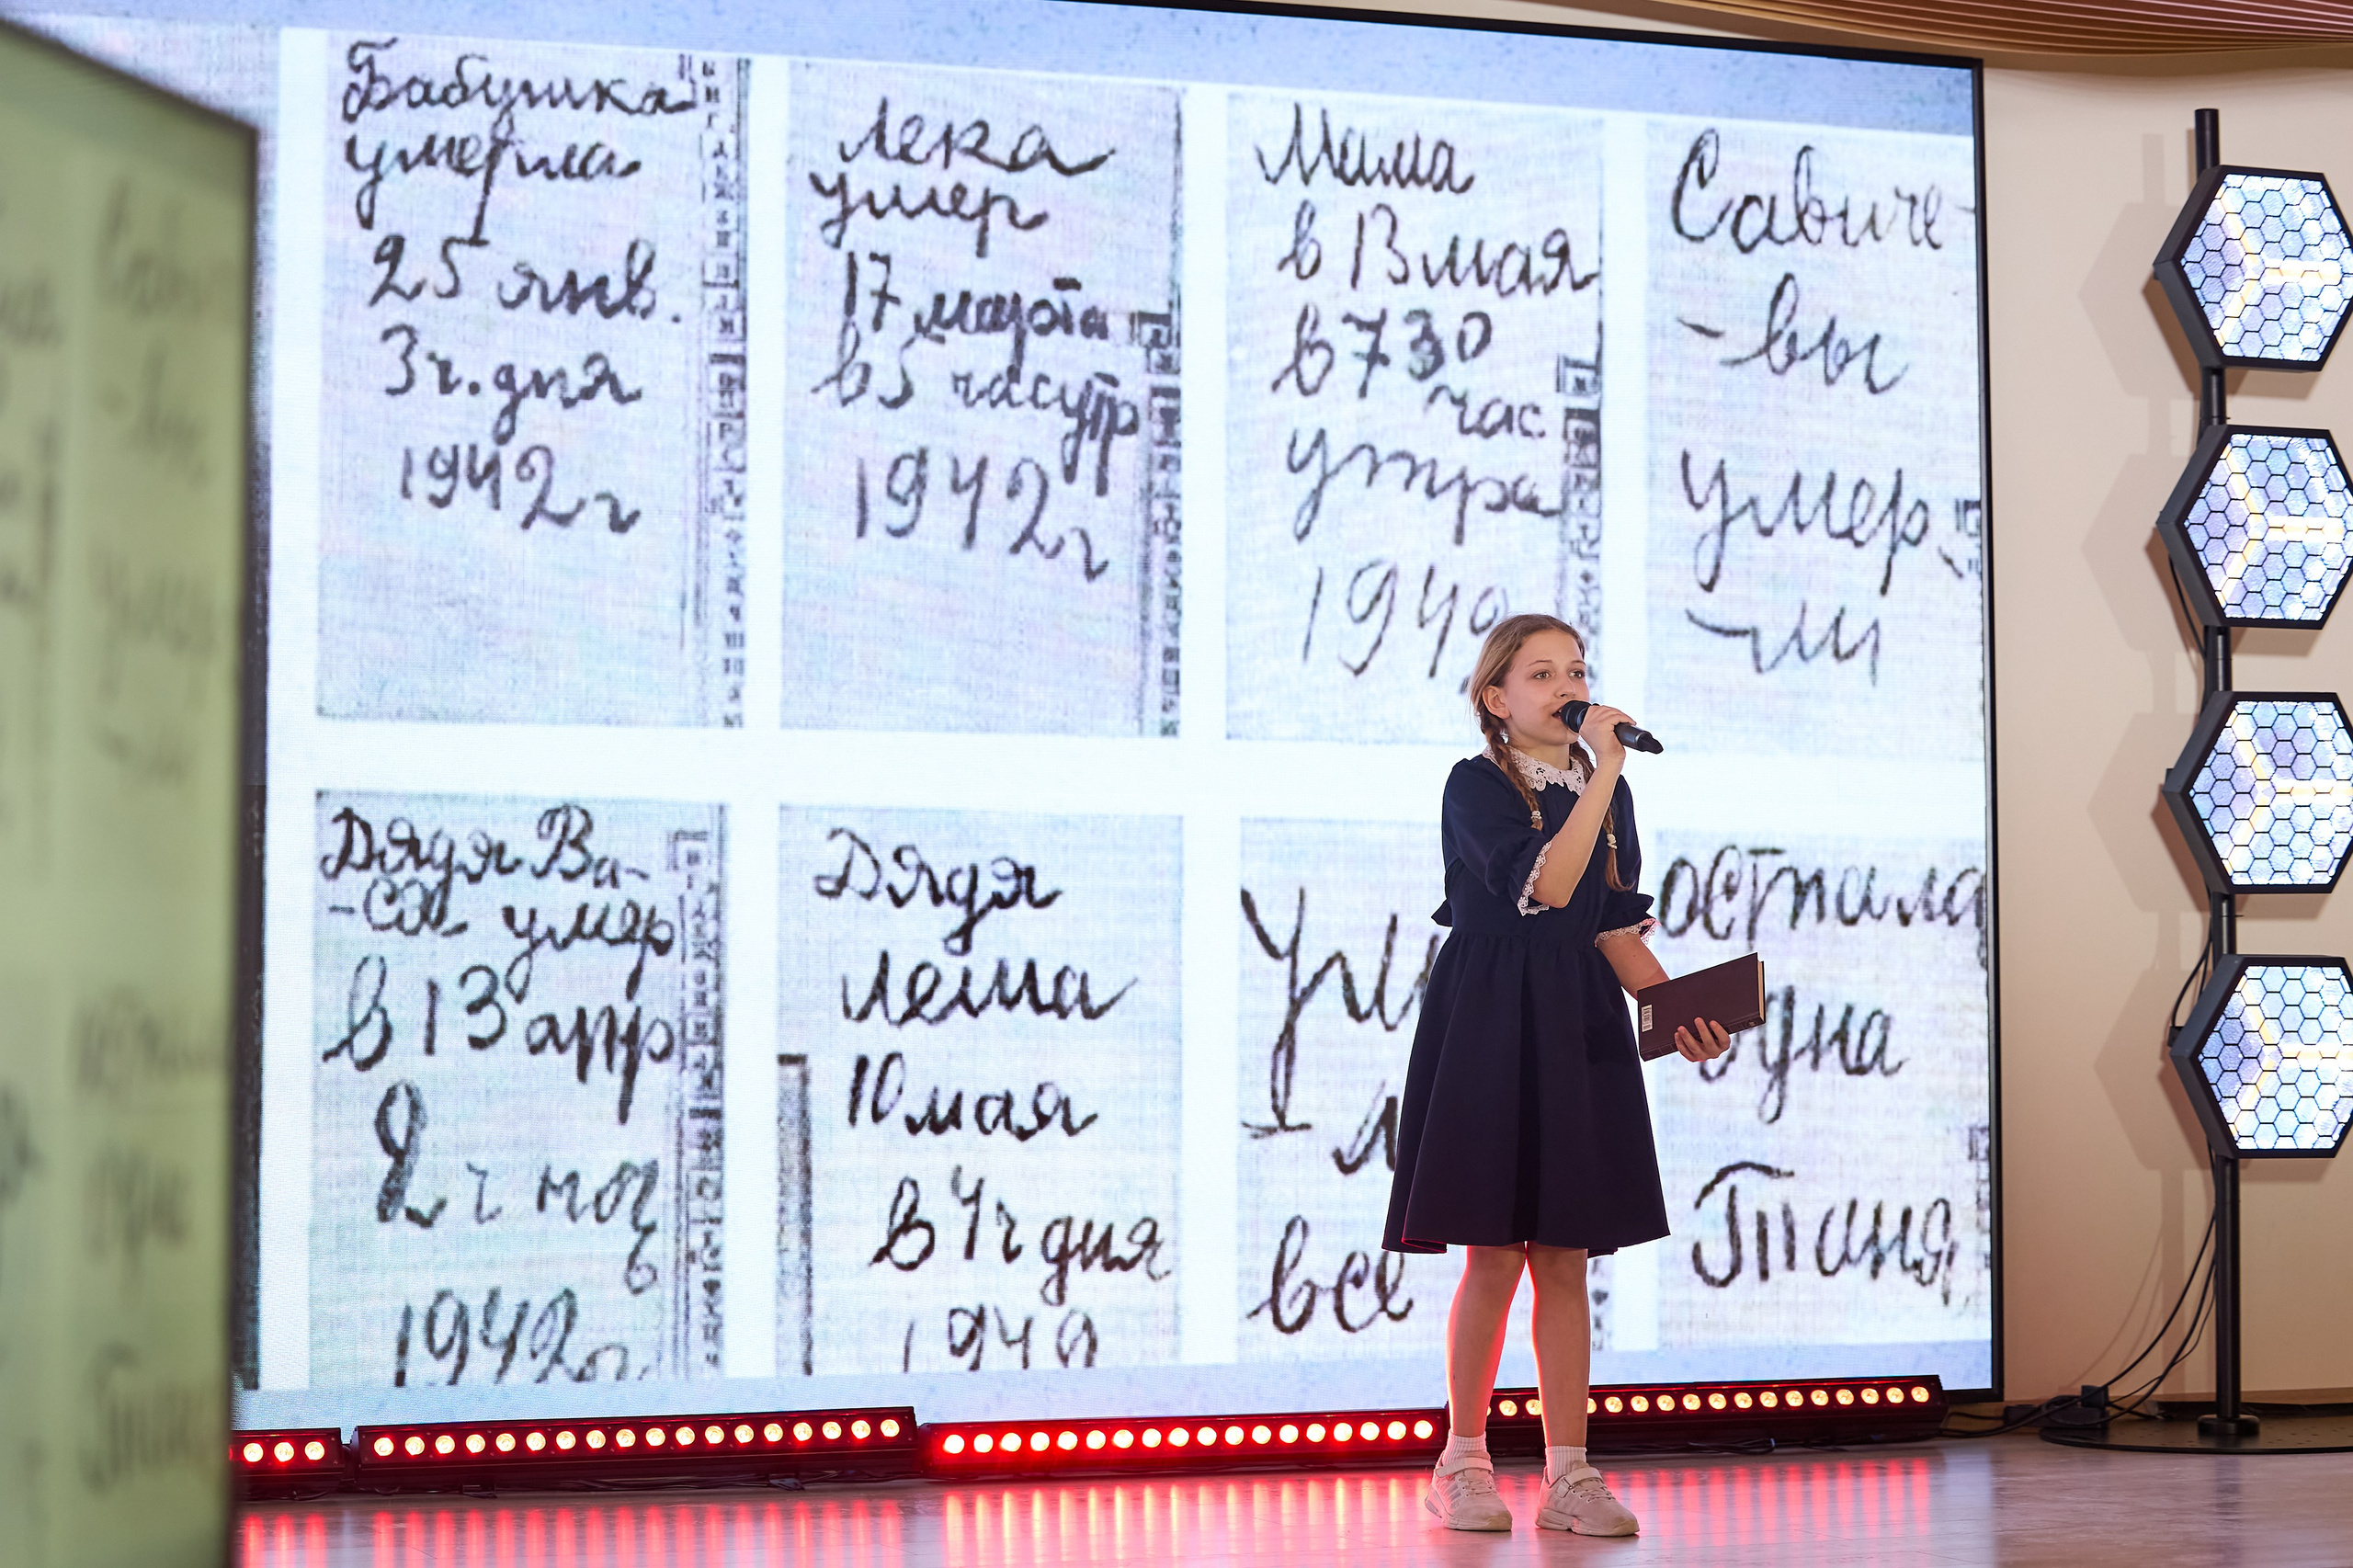 Бабушка
умерла
25 янв.
3 ч. дня
1942 г
Лека
умер
17 марта
в 5 час утр
1942 г
Мама
в 13 мая
в 7 30
час
утра
194
Савиче-
-вы
умер-
-ли
Дядя Ва-
-ся умер
в 13 апр
2 ч ноч
ь
1942 г.
Дядя
Леша
10 мая
в 4 ч дня
1942
все
осталась
Таня